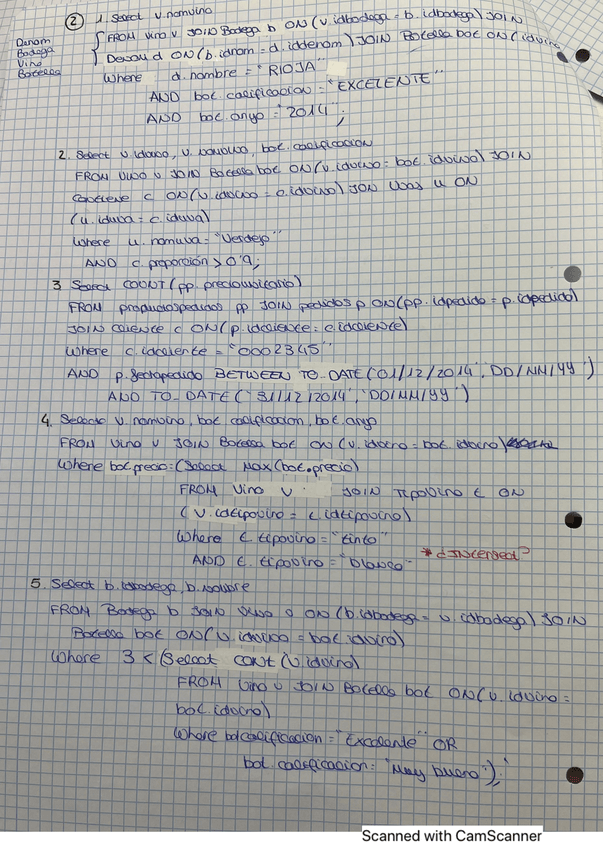 ② 1. Select v.nomvino
FROM vino v JOIN Bodega b ON (v.idbodega = b.idbodega) JOIN
Denom d ON (b.idnom = d.iddenom) JOIN Botella bot ON (idvino
Denom
Bodega
Vino
Botella
Where d.nombre = "RIOJA"
AND bot.calificacion = "EXCELENTE"
AND bot.anyo = "2014";
2. Select v.idvino, v.nomvino, bot.calificacion
FROM vino v JOIN Botella bot ON (v.idvino = bot.idvino) JOIN
contiene c ON (v.idvino = c.idvino) JOIN Uvas u ON
(u.iduva = c.iduva)
Where u.nomuva = "Verdejo"
AND c.proporción > 0'9;
3 Select COUNT (pp.preciounitario)
FROM productospedidos pp JOIN pedidos p ON (pp.idpedido = p.idpedido)
JOIN cliente c ON (p.idcliente = c.idcliente)
Where c.idcliente = "0002345"
AND p.fechapedido BETWEEN TO_DATE ('01/12/2014', 'DD/MM/YY')
AND TO_DATE ('31/12/2014', 'DD/MM/YY')
4. Select v.nomvino, bot.calificacion, bot.anyo
FROM vino v JOIN Botella bot ON (v.idvino = bot.idvino)
Where bot.precio = (Select MAX (bot.precio)
FROM vino v JOIN tipovino t ON
(v.idtipovino = t.idtipovino)
Where t.tipovino = "tinto"
AND t.tipovino = "blanco"
* ¿INtersect?
5. Select b.idbodega, b.nombre
FROM Bodega b JOIN vino v ON (b.idbodega = v.idbodega) JOIN
Botella bot ON (v.idvino = bot.idvino)
Where 3 < (Select cont (v.idvino)
FROM vino v JOIN Botella bot ON (v.idvino =
bot.idvino)
Where bot.calificacion = "Excelente" OR
bot.calificacion = "Muy bueno");
Scanned with CamScanner